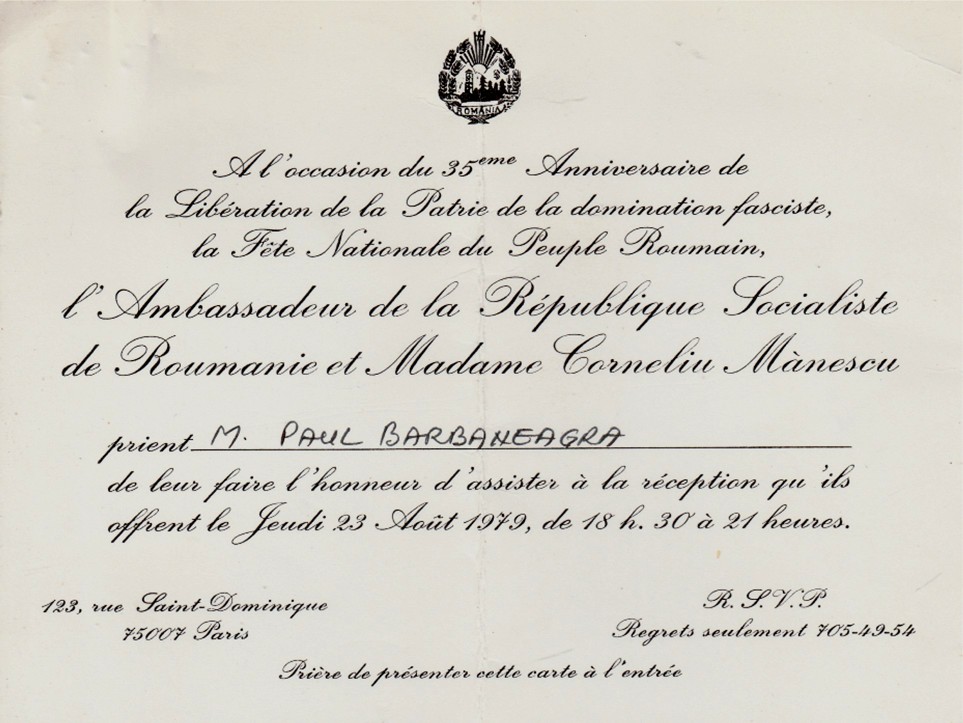 ROMÂNIA
A l'occasion du 35eme Anniversaire de
la Libération de la Patrie de la domination fasciste,
la Fête Nationale du Peuple Roumain,
l'Ambassadeur de la République Socialiste
de Roumanie et Madame Corneliu Mànescu
prient M. PAUL BARBANEAGRA
de leur faire l'honneur d'assister à la réception qu'ils
offrent le Jeudi 23 Août 1979, de 18 h. 30 à 21 heures.
123, rue Saint-Dominique
75007 Paris
R. S. V. P.
Regrets seulement 705-49-54
Prière de présenter cette carte à l'entrée